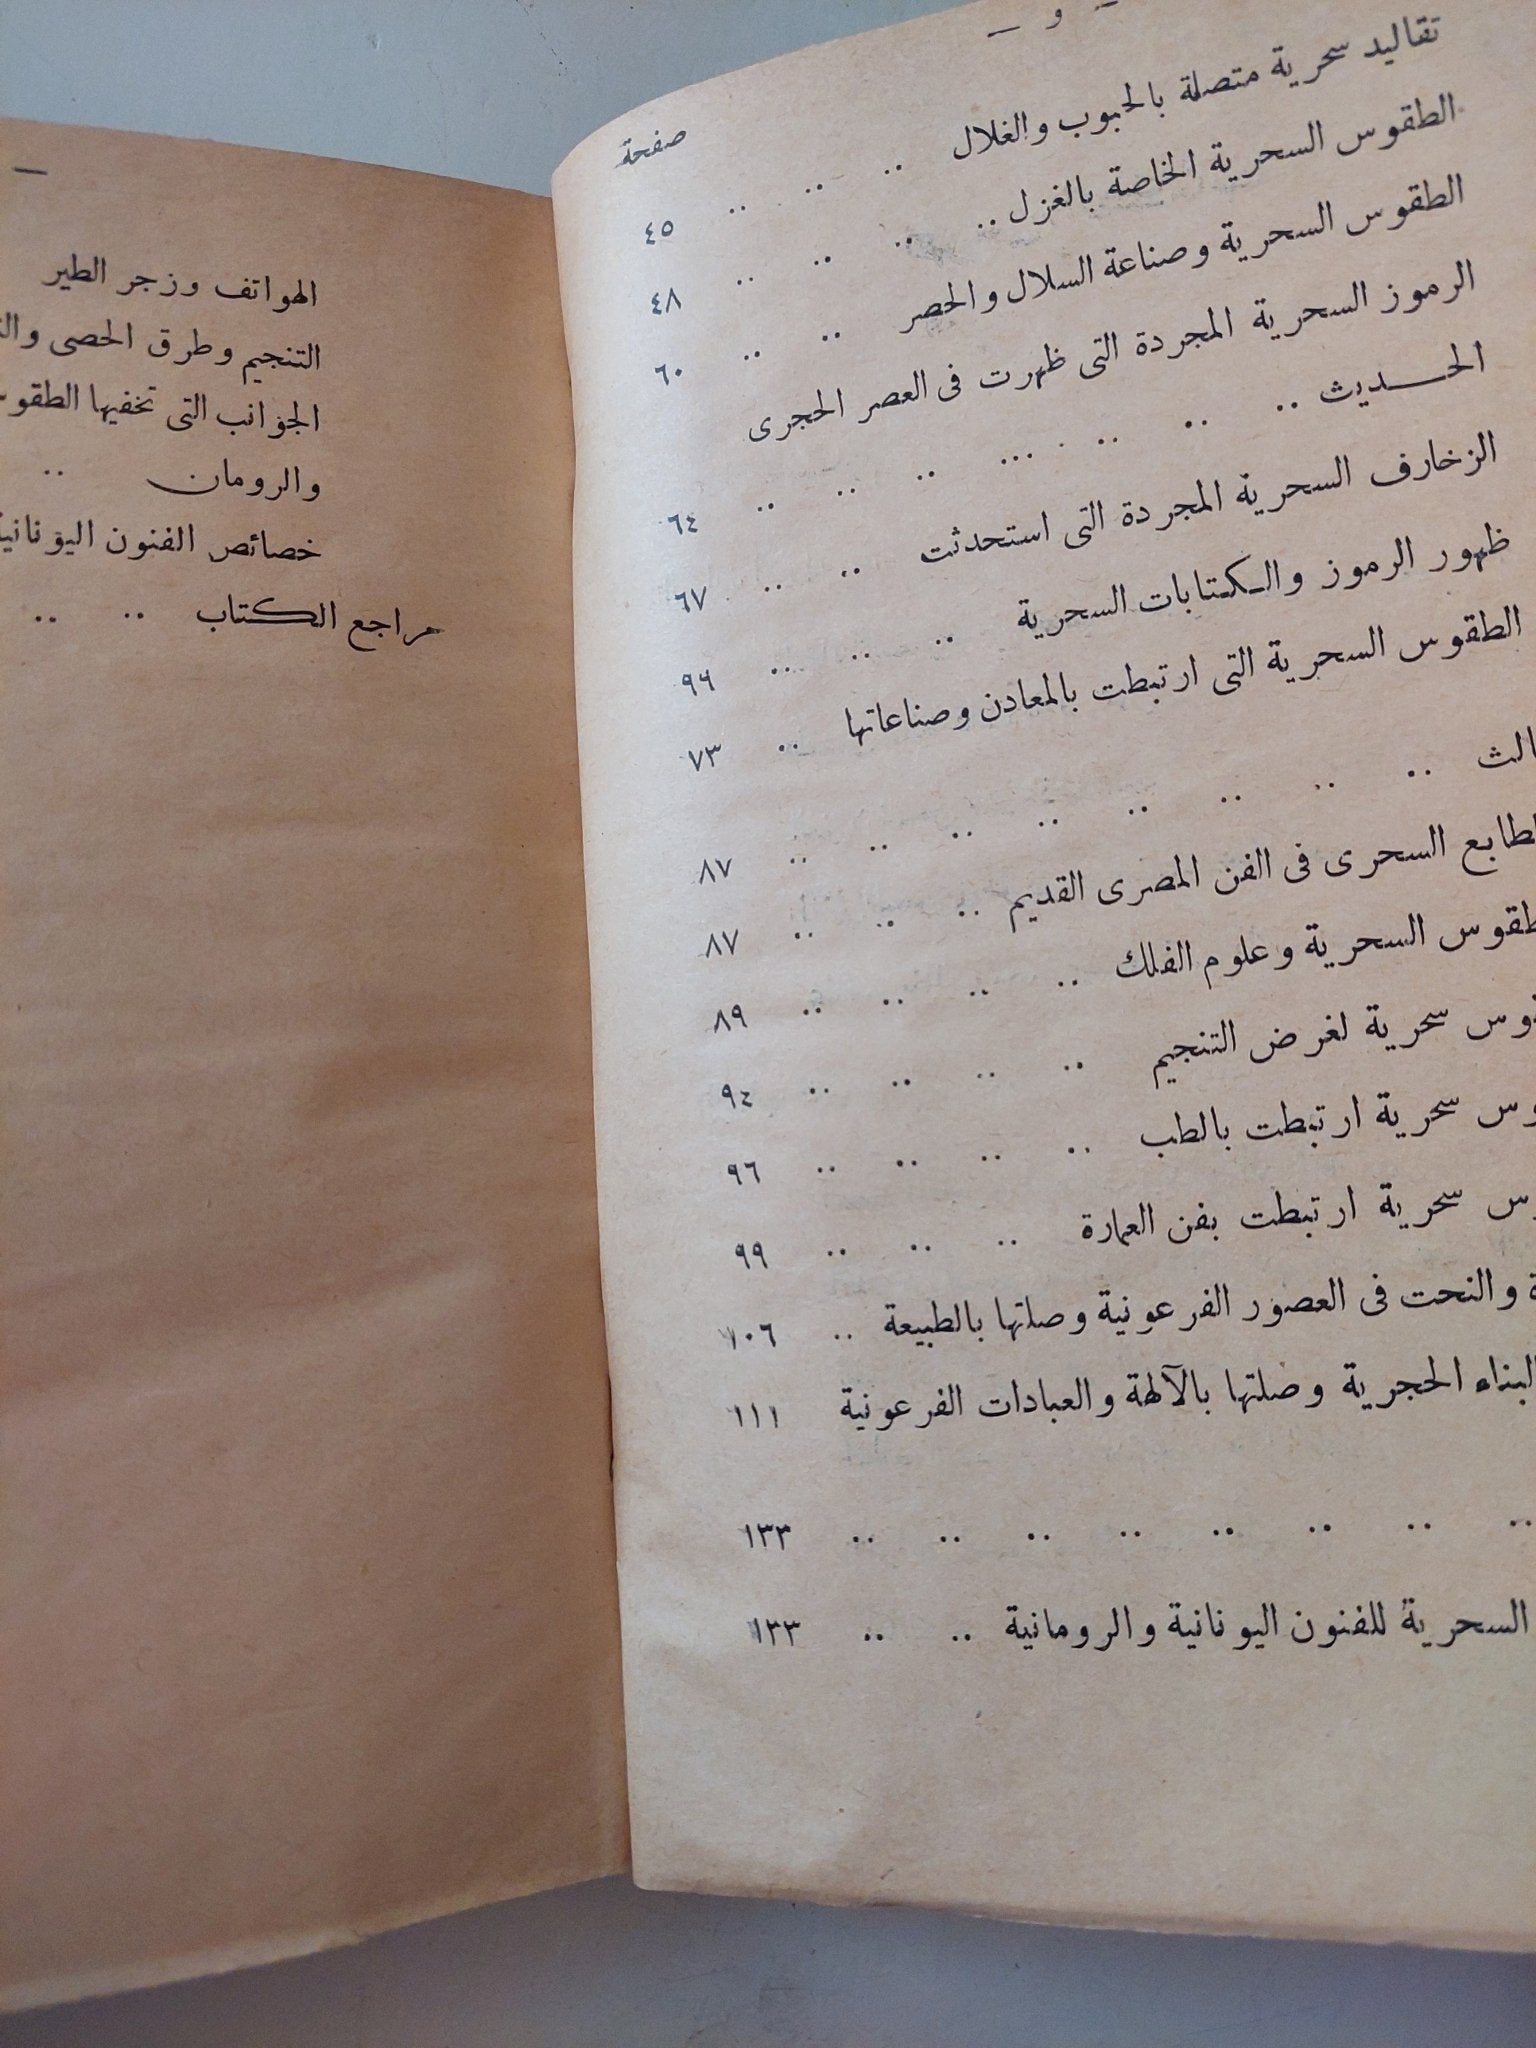 — و —
صفحة
تقاليد سحرية متصلة بالحبوب والغلال .. .. .. ٤٥
الطقوس السحرية الخاصة بالغزل .. .. .. .. ٤٨
الطقوس السحرية وصناعة السلال والحصر .. .. ٦٠
الرموز السحرية المجردة التى ظهرت فى العصر الحجرى
الحـــديث .. .. .. ... .. .. .. ٦٤
الزخارف السحرية المجردة التى استحدثت .. .. ٦٧
ظهور الرموز والـكـتابات السحرية .. .. .. ٩٦
الطقوس السحرية التى ارتبطت بالمعادن وصناعاتها .. ٧٣
الث .. .. .. .. .. .. .. .. ٨٧
لطابع السحرى فى الفن المصرى القديم .. .. .. ٨٧
طقوس السحرية وعلوم الفلك .. .. .. .. ٨٩
وس سحرية لغرض التنجيم .. .. .. .. ٩٤
وس سحرية ارتبطت بالطب .. .. .. .. ٩٦
س سحرية ارتبطت بفن العمارة .. .. .. ٩٩
ة والنحت فى العصور الفرعونية وصلتها بالطبيعة .. ١٠٦
البناء الحجرية وصلتها بالآلهة والعبادات الفرعونية ١١١
.. .. .. .. .. .. .. .. ١٣٣
السحرية للفنون اليونانية والرومانية .. .. ١٣٣
—
الهواتف وزجر الطير
التنجيم وطرق الحصى
الجوانب التى تخفيها الطقو
والرومان ..
خصائص الفنون اليونانية
مراجع الكتاب .. ..